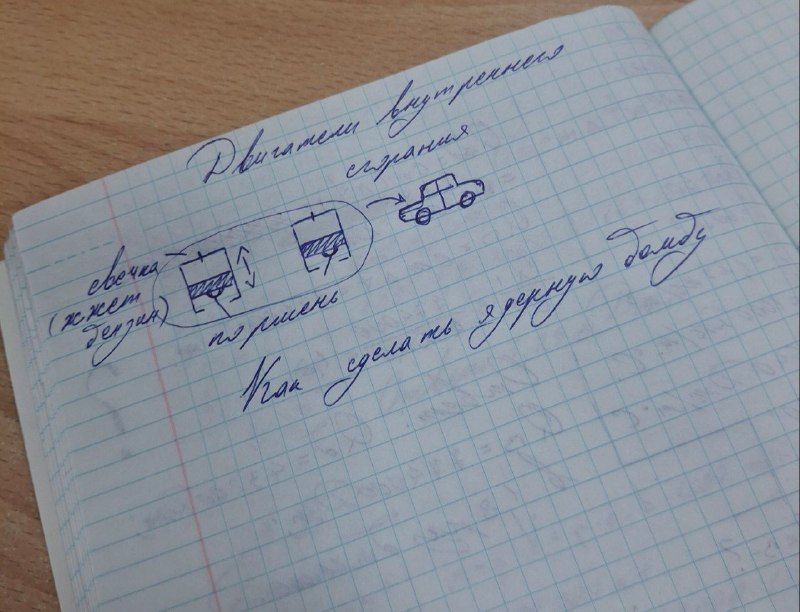 Двигатели внутреннего
сгорания
свечка
(жжет
бензин)
поршень
Как сделать ядерную бомбу